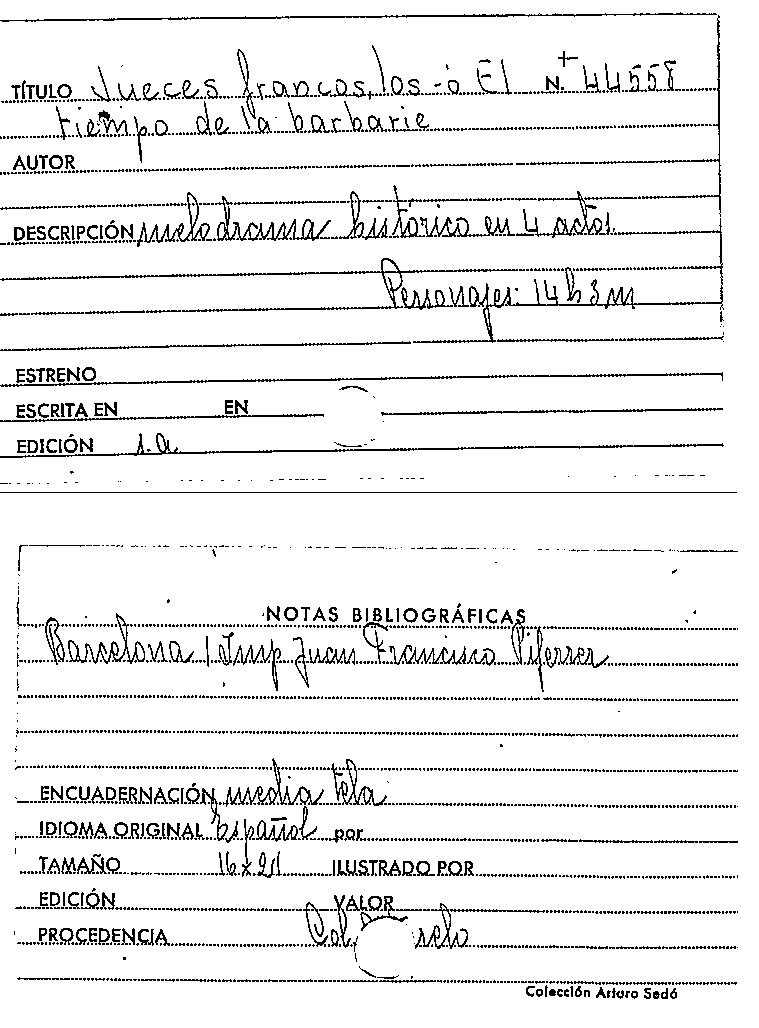 TÍTULO Jueces francos, los -ó El N.+ 44558
tiempo de la barbarie
AUTOR
DESCRIPCIÓN melodrama histórico en 4 actos.
Personajes: 14 h 3 m
ESTRENO
ESCRITA EN EN
EDICIÓN s.a.
NOTAS BIBLIOGRÁFICAS
Barcelona / Imp Juan Francisco Piferrer
ENCUADERNACIÓN media tela
IDIOMA ORIGINAL Español por
TAMAÑO 16x21 ILUSTRADO POR
EDICIÓN VALOR
PROCEDENCIA Col.
Colección Arturo Sedó